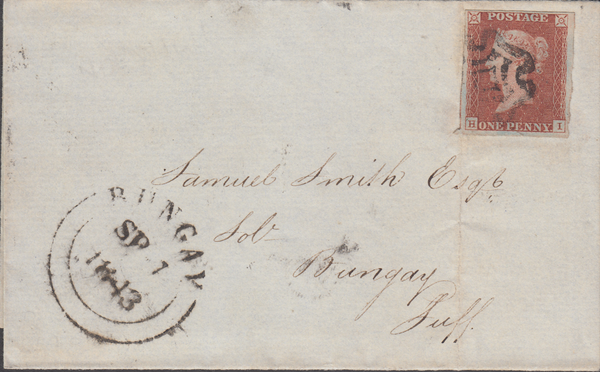 POSTAGE
H ONE PENNY I
Samuel Smith Esqr
Solr
Bungay
Suff.
BUNGAY
SP 1
1843